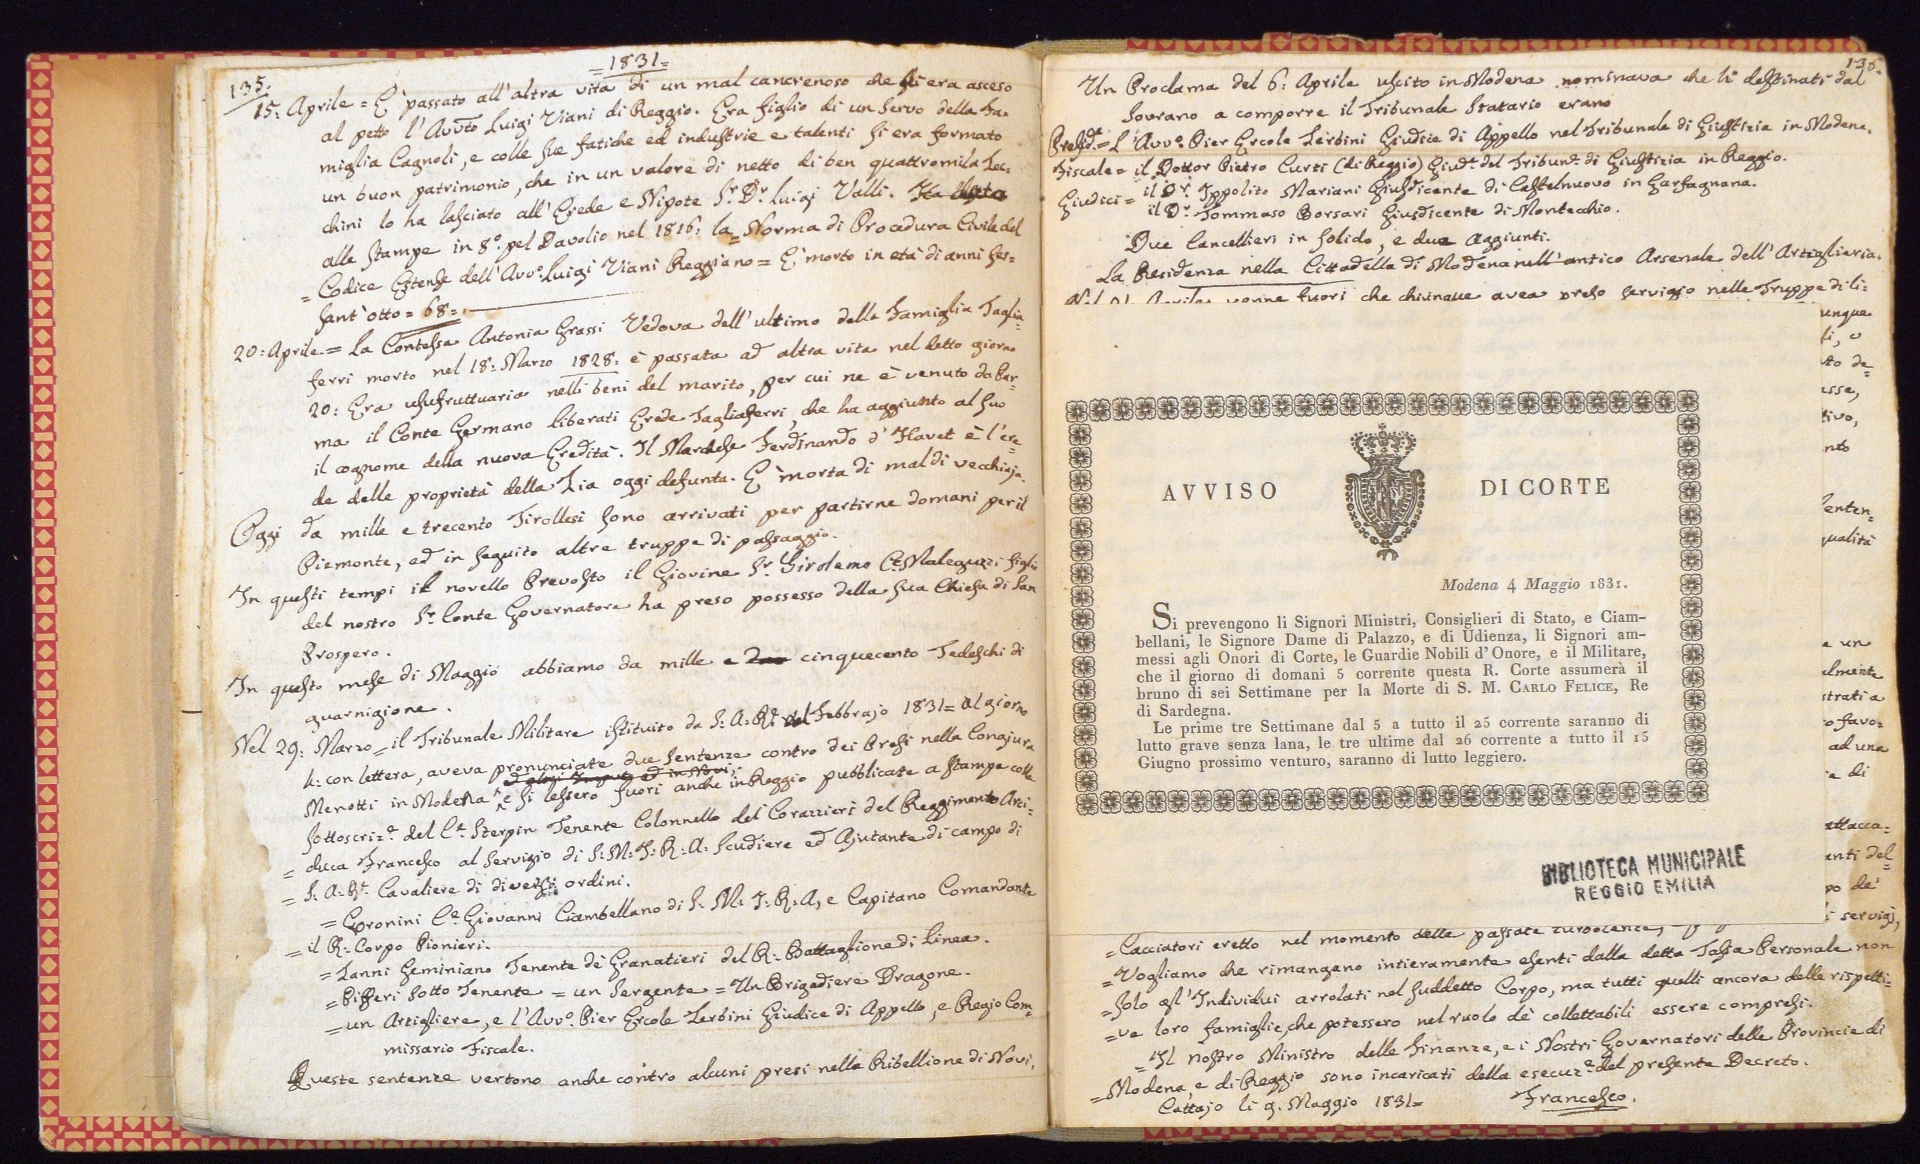 =1831=
135.
15. Aprile = E' passato all'altra vita di un mal cancrenoso che si era asceso
al petto l'Avvto Luigi Viani di Reggio. Era figlio di un servo della Fa=
miglia Cagnoli, e colle sue fatiche ed industrie e talenti si era formato
un buon patrimonio, che in un valore di netto di ben quattromila Zec:
chini lo ha lasciato all'Erede e Nipote Sr. Dr. Luigi Valli. Ha
alle stampe in 8°. pel Davolio nel 1816: la = Norma di Procedura Civile del
= Codice Estense dell'Avvo. Luigi Viani Reggiano = E' morto in età di anni ses=
sant'otto = 68=.
20: Aprile = La Contessa Antonia Grassi Vedova dell'ultimo della Famiglia Taglia=
ferri morto nel 18: Marzo 1828: è passata ad altra vita nel detto giorno
20: Era usufruttuaria nelli beni del marito, per cui ne è venuto da Par=
ma il Conte Germano Liberati Erede Tagliaferri, che ha aggiunto al suo
il cognome della nuova Eredità. Il Marchese Ferdinando d'Havet è l'ere=
de delle proprietà della Zia oggi defunta. E' morta di mal di vecchiaja.
Oggi da mille e trecento Tirollesi sono arrivati per partirne domani per il
Piemonte, ed in seguito altre truppe di passaggio.
In questi tempi il novello Prevosto il Giovine Sr. Girolamo Ce. Malaguzzi figlio
del nostro Sr. Conte Governatore ha preso possesso della sua Chiesa di San
Prospero.
In questo mese di Maggio abbiamo da mille e cinquecento Tedeschi di
guarnigione.
Nel 29: Marzo = il Tribunale Militare istituito da S: A: Re. Febbrajo 1831 = al giorno
4: con lettera, aveva pronunciate due sentenze contro dei Presi nella Congiura
Menotti in Modena e si lessero fuori anche in Reggio pubblicate a stampe colla
sottoscrize. del Ce. Sterpin Tenente Colonnello del Corazzieri del Reggimento Arci=
= duca Francesco al servigio di S: M: I: R: A: Scudiere ed Ajutante di campo di
= S: A: Re. Cavaliere di diversi ordini.
= Coronini Ce. Giovanni Ciambellano di S: M: I: R: A, e Capitano Comandante
= il R: Corpo Pionieri.
= Zanni Geminiano Tenente de' Granatieri del R: Battaglione di Linea.
= Pifferi Sotto Tenente = un Sergente = Un Brigadiere Dragone.
= un Artigliere, e l'Avvo. Pier Ercole Zerbini Giudice di Appello, e Regio Com=
missario Fiscale.
Queste sentenze vertono anche contro alcuni presi nella Ribellione di Novi.
136.
Un Proclama del 6: Aprile uscito in Modena nominava che li destinati dal
Sovrano a comporre il Tribunale Statario erano
Presidte = L'Avvo. Pier Ercole Zerbini Giudice di Appello nel Tribunale di Giustizia in Modena.
Fiscale = il Dottor Pietro Curti (di Reggio) Giude. del Tribune. di Giustizia in Reggio.
Giudici = il Dr. Ippolito Mariani Giusdicente di Castelnuovo in Garfagnana.
il Dr. Tommaso Borsari Giusdicente di Montecchio.
Due Cancellieri in solido, e due Aggiunti.
La Residenza nella Cittadella di Modena nell'antico Arsenale dell'Artiglieria.
Aprile venne fuori che chiunque avea preso servigio nelle Truppe di li=
AVVISO DI CORTE
Modena 4 Maggio 1831.
Si prevengono li Signori Ministri, Consiglieri di Stato, e Ciam-
bellani, le Signore Dame di Palazzo, e di Udienza, li Signori am-
messi agli Onori di Corte, le Guardie Nobili d'Onore, e il Militare,
che il giorno di domani 5 corrente questa R. Corte assumerà il
bruno di sei Settimane per la Morte di S. M. CARLO FELICE, Re
di Sardegna.
Le prime tre Settimane dal 5 a tutto il 25 corrente saranno di
lutto grave senza lana, le tre ultime dal 26 corrente a tutto il 15
Giugno prossimo venturo, saranno di lutto leggiero.
BIBLIOTECA MUNICIPALE
REGGIO EMILIA
= Cacciatori eretto nel momento delle passate turbolenze,
= Vogliamo che rimangano intieramente esenti dalla detta Tassa Personale non
= solo gl'Individui arrolati nel suddetto Corpo, ma tutti quelli ancora delle rispetti=
= ve loro famiglie, che potessero nel ruolo de' collettabili essere compresi.
= Il nostro Ministro delle Finanze, e i Nostri Governatori delle Provincie di
= Modena, e di Reggio sono incaricati della esecuze. del presente Decreto.
Cattajo li 9. Maggio 1831= Francesco.